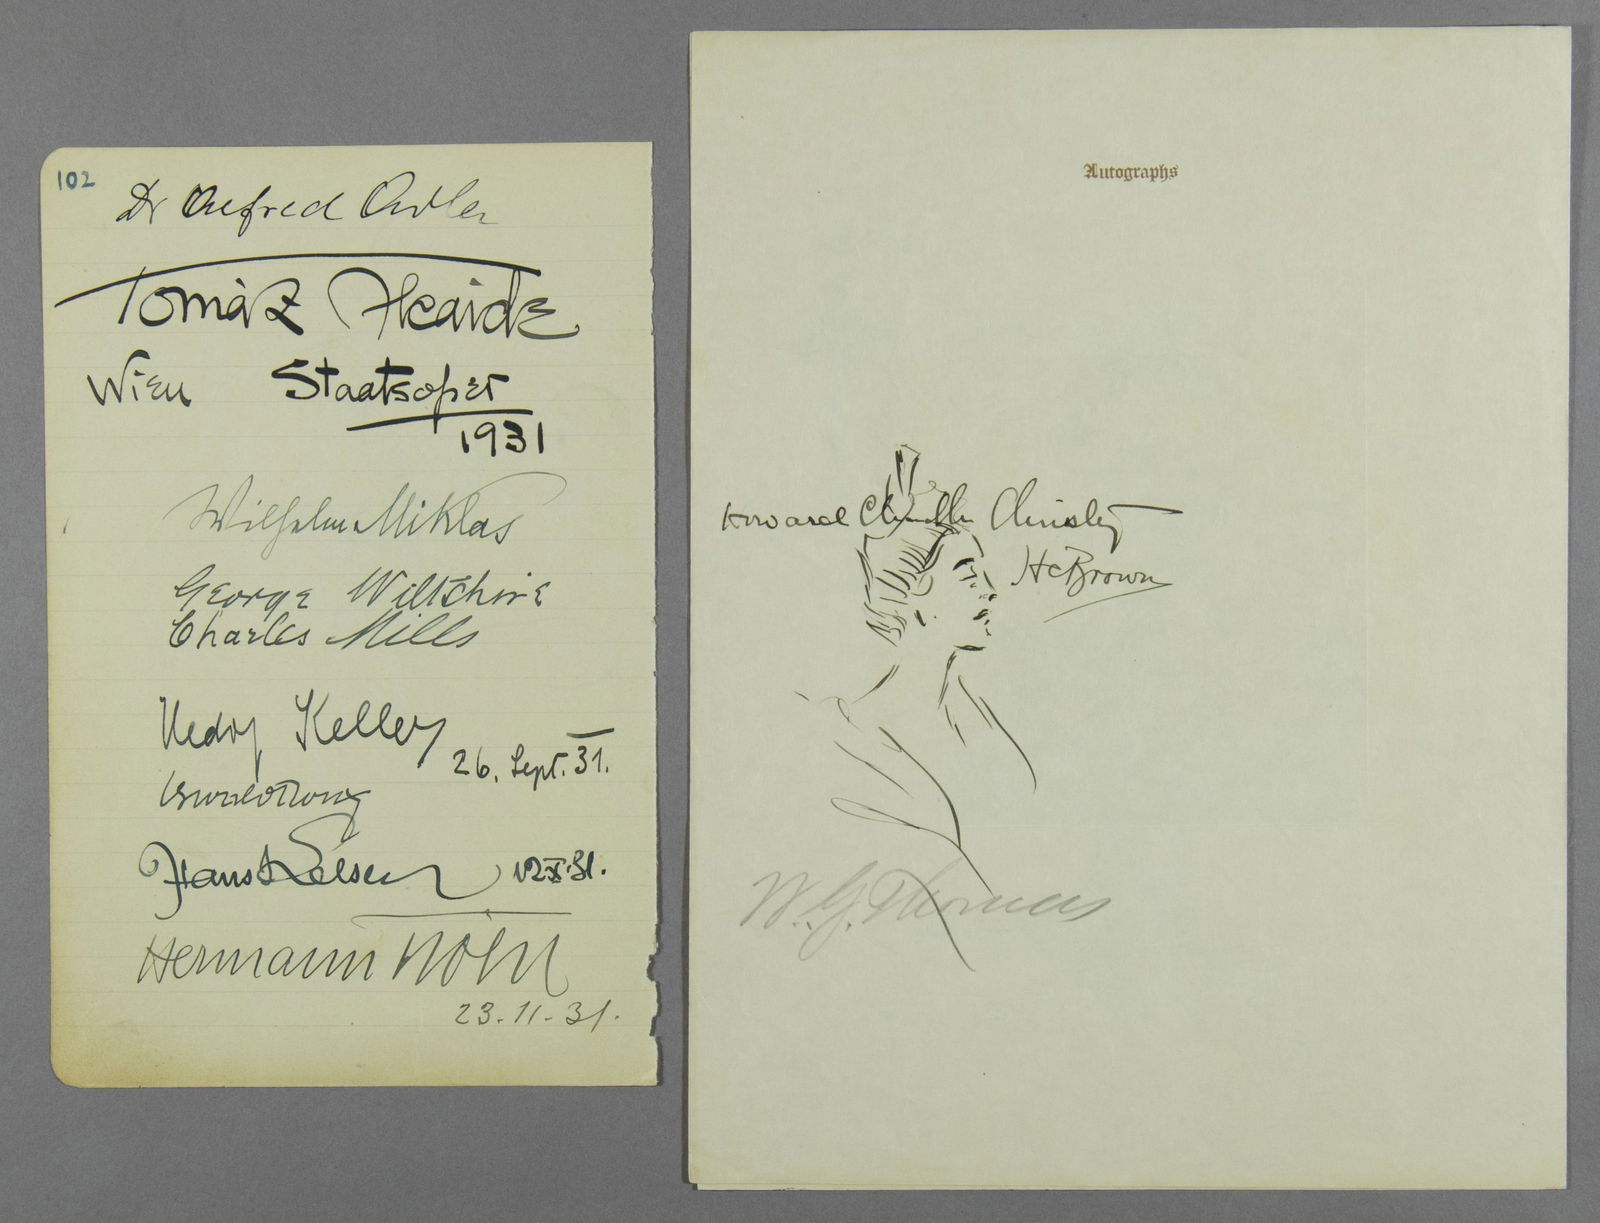 102
Dr Alfred Adler
Tomáz Alcaide
Wien Staatsoper
1931
Wilhelm Miklas
George Wiltshire
Charles Mills
Keller
26. Sept. 31.
Hans Kelsen 12 X. 31.
Hermann Köhl
23.11.31.
Autographs
Howard Chandler Christy
HcBrown
W. G. Thomas